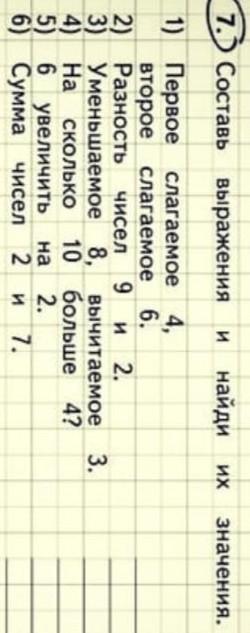 7. Составь выражения и найди их значения.
1) Первое слагаемое 4,
второе слагаемое 6.
2) Разность чисел 9 и 2.
3) Уменьшаемое 8, вычитаемое 3.
4) На сколько 10 больше 4?
5) 6 увеличить на 2.
6) Сумма чисел 2 и 7.